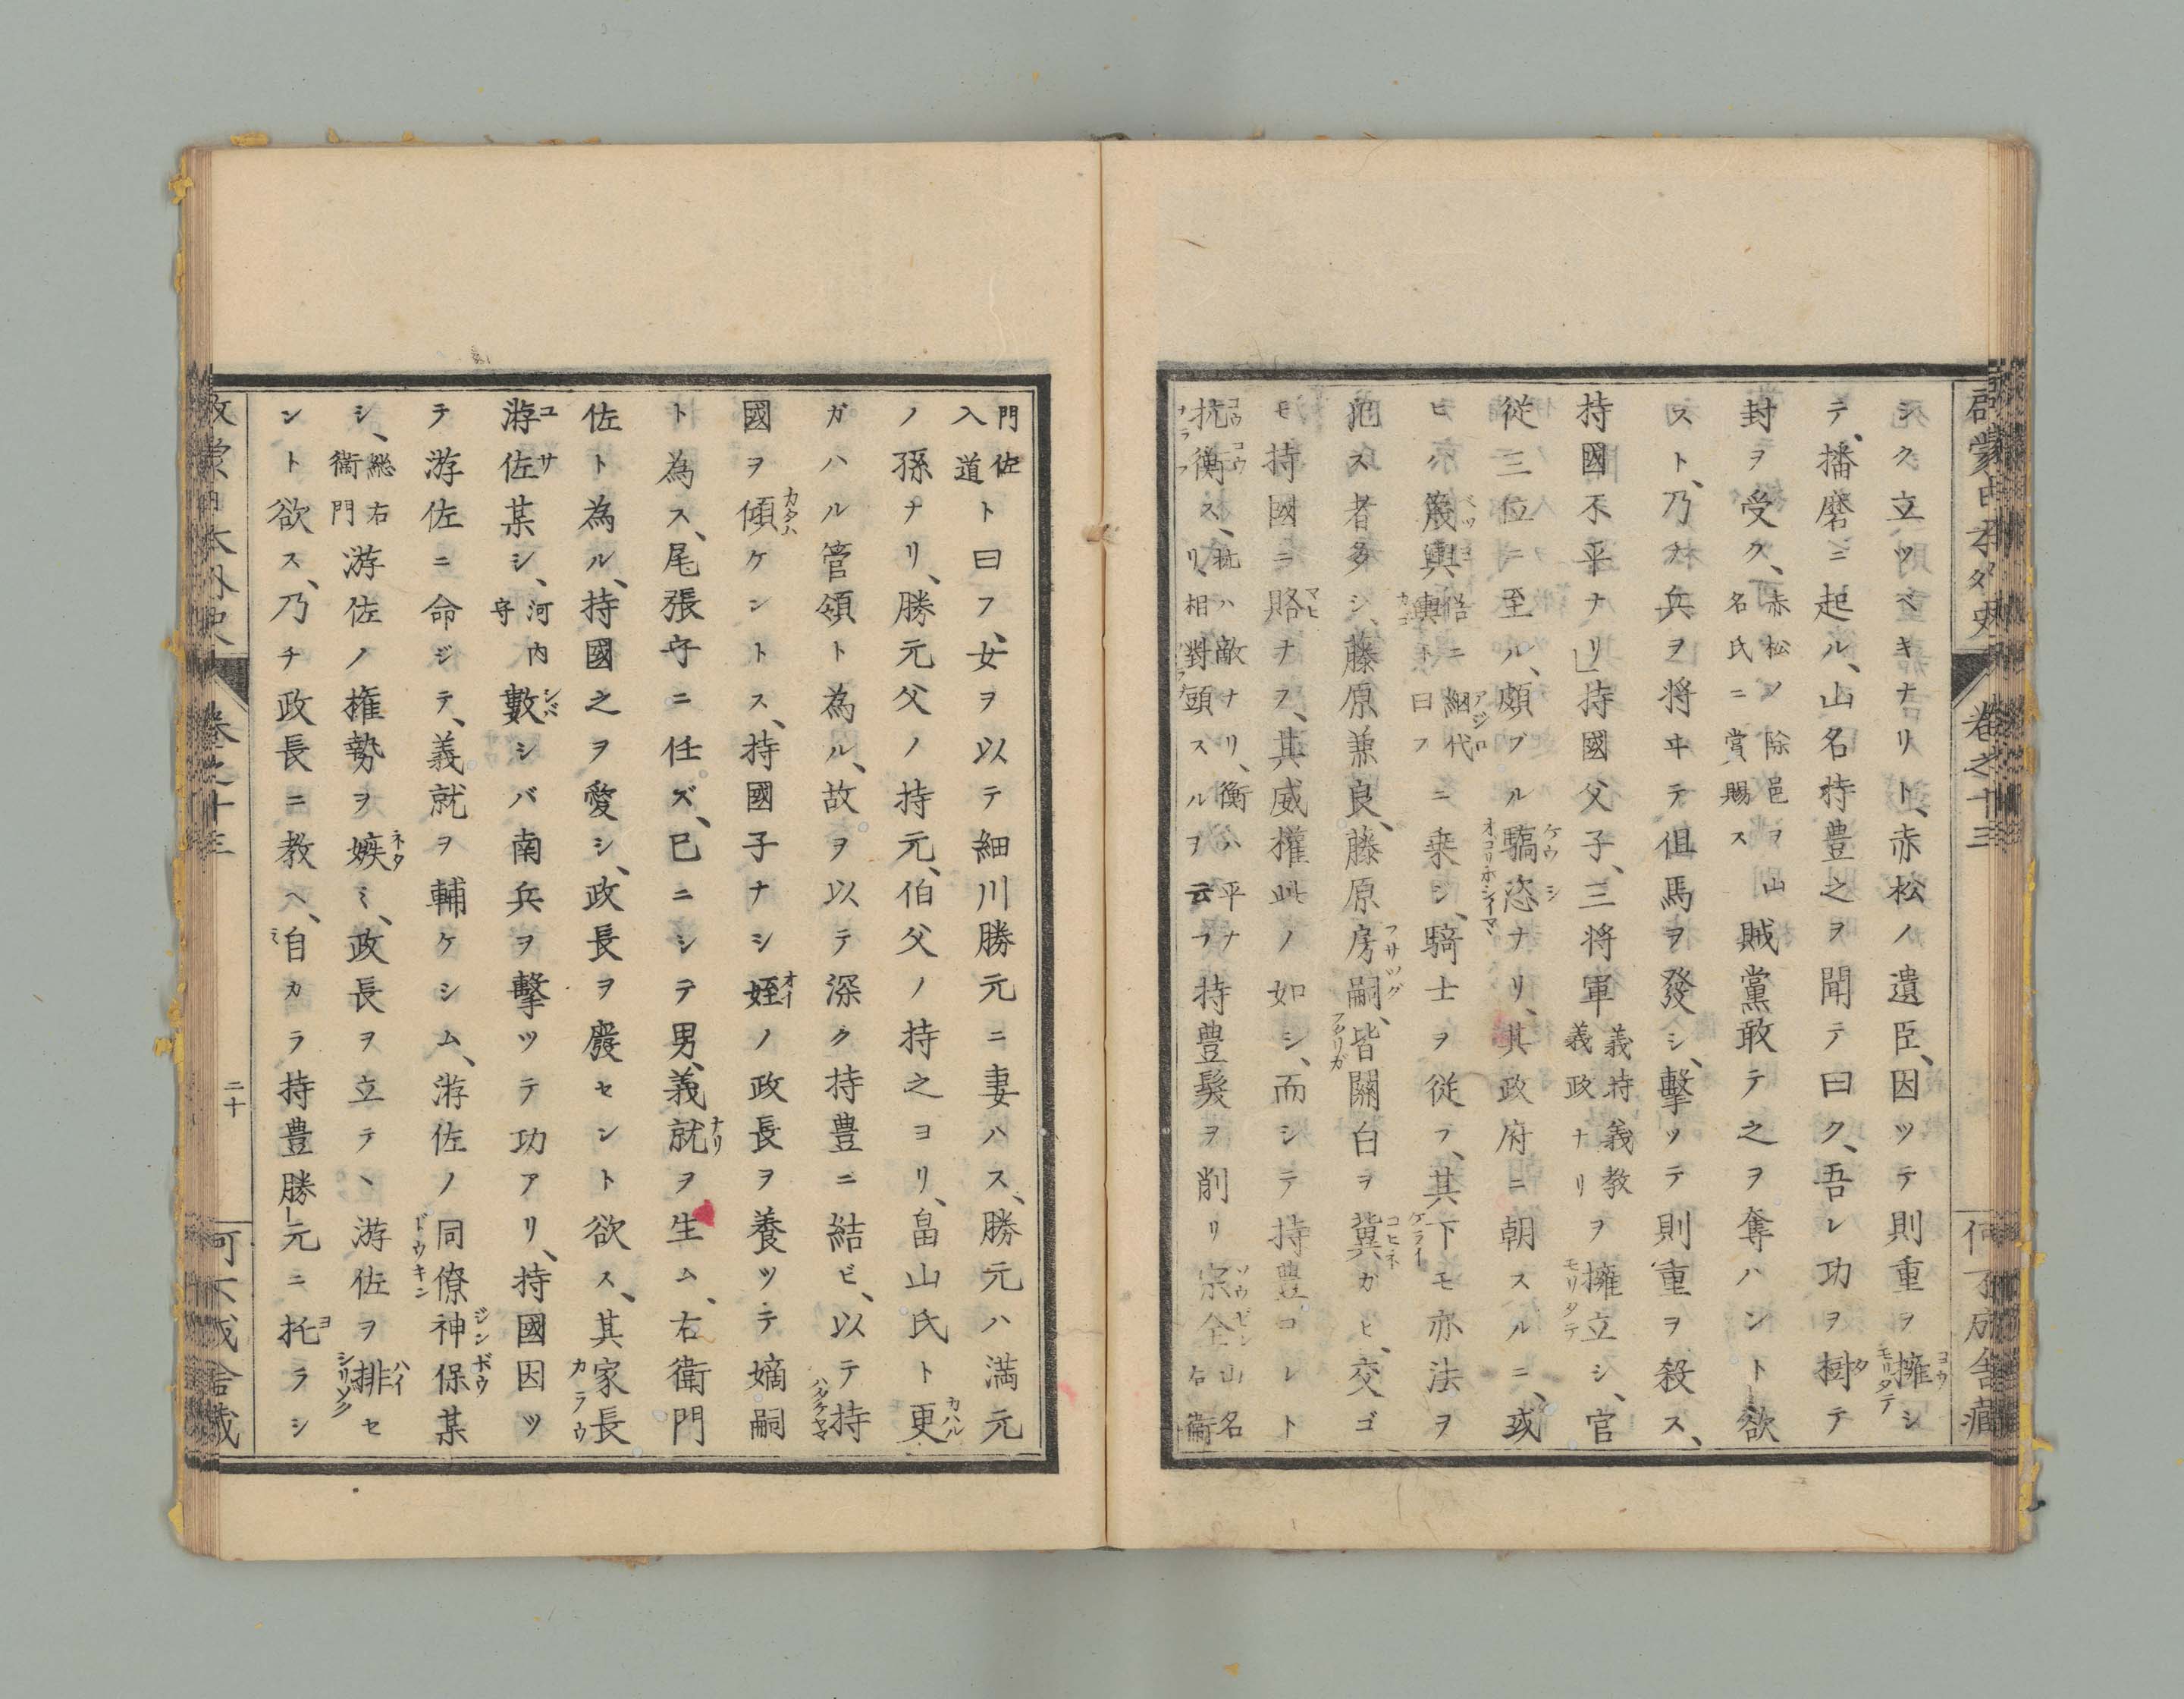 シク立ツベキナリト、赤松ノ遺臣、因ツテ則重ヲ擁シ
テ、播磨ニ起ル、山名持豊之ヲ聞テ曰ク、吾レ功ヲ樹テ
封ヲ受ク、赤松ノ除邑ヲ山名氏ニ賞賜ス賊黨敢テ之ヲ奪ハントー欲
スト、乃ナ兵ヲ将ヰテ但馬ヲ發シ、擊ツテ則重ヲ殺ス、
持國不平ナリ」持國父子、三将軍義持義教義政ナリヲ擁立シ、官
從三位ニ至ル、頗ブル驕恣ナリ、其政府ニ朝スルニ、或
ヒハ篾輿俗ニ網代輿ト曰フニ乗シ、騎士ヲ従フ、其下モ亦法ヲ
犯ス者多シ、藤原兼良、藤原房嗣、皆關白ヲ冀ガヒ、交ゴ
モ持國ニ賂ナヲ、其威權此ノ如シ、而シテ持豊コレト
抗衡ス、抗ハ敵ナリ、衡ハ平ナリ、相對頭スルヲ云フ持豊髮ヲ削リ宗全山名右衞
門佐入道ト曰フ、女ヲ以テ細川勝元ニ妻ハス、勝元ハ満元
ノ孫ナリ、勝元父ノ持元、伯父ノ持之ヨリ、畠山氏ト更
ガハル管領ト為ル、故ヲ以テ深ク持豊ニ結ビ、以テ持
國ヲ傾ケントス、持國子ナシ姪ノ政長ヲ養ツテ嫡嗣
ト為ス、尾張守ニ任ズ、已ニシテ男、義就ヲ生ム、右衛門
佐ト為ル、持國之ヲ愛シ、政長ヲ廢セント欲ス、其家長
游佐某シ、河内守數シバ南兵ヲ擊ツテ功アリ、持國因ツ
テ游佐ニ命ジテ、義就ヲ輔ケシム、游佐ノ同僚神保某
シ、総右衞門游佐ノ権勢ヲ嫉ミ、政長ヲ立テ、游佐ヲ排セ
ント欲ス、乃チ政長ニ教ヘ、自カラ持豊勝ー元ニ托ラシ
啓蒙日本外史
卷之十三
二十